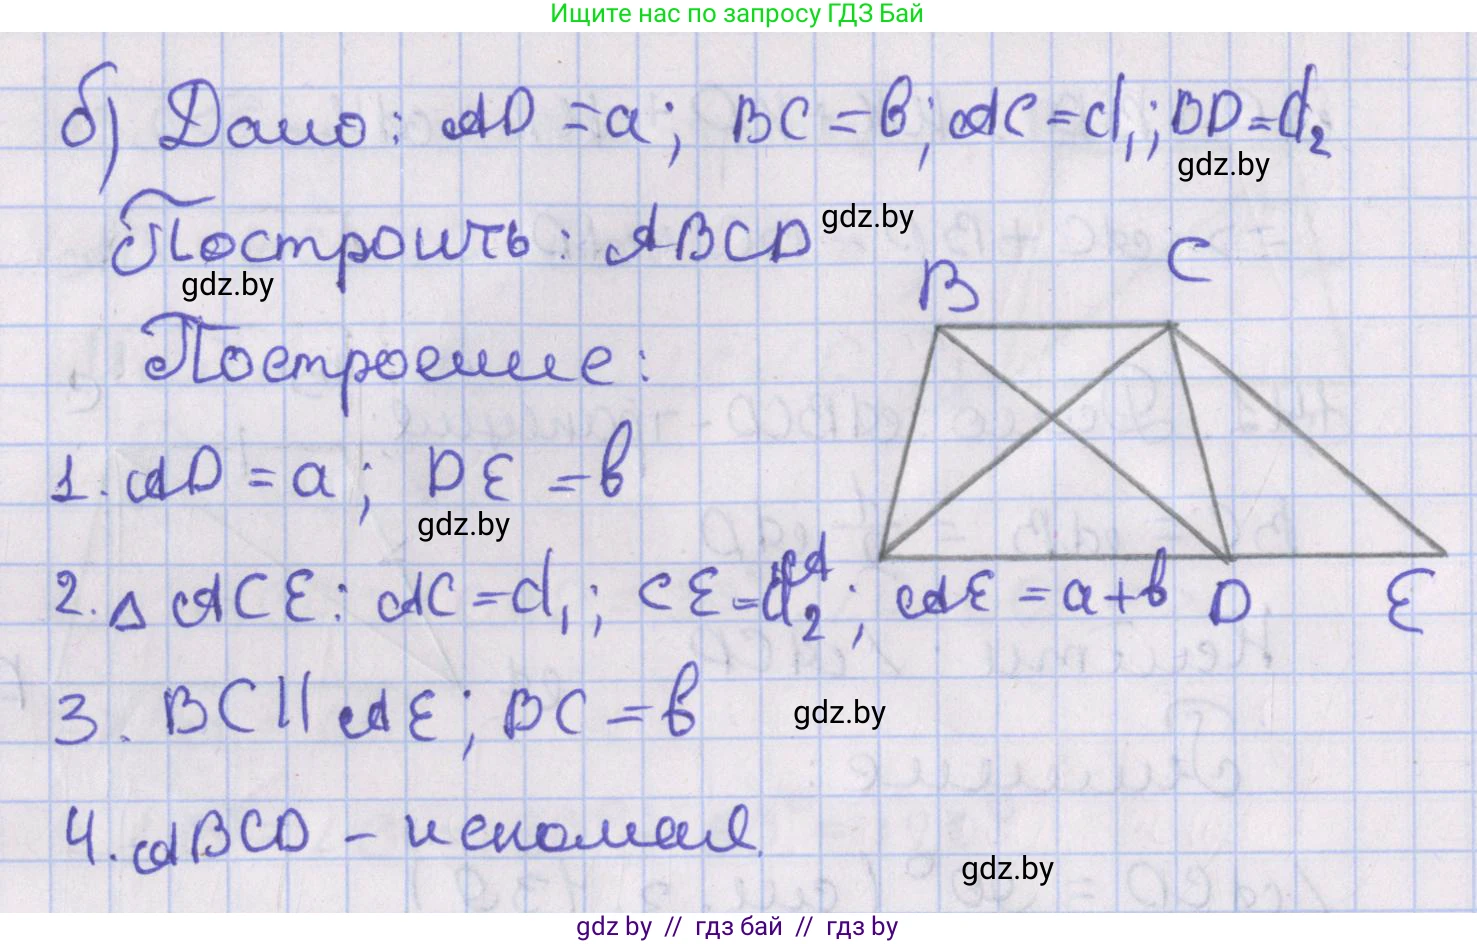 Ищите нас по запросу ГДЗ Бай
б) Дано: AD = a; BC = в; AC = d₁; BD = d₂
gdz.by
Построить: ABCD
gdz.by
gdz.by
B C
Построение:
1. AD = a; DE = в
gdz.by
A D E
2. △ ACE: AC = d₁; CE = d₂; AE = a + в
3. BC || AE; BC = в
gdz.by
4. ABCD – искомая.
gdz.by
gdz.by // гдз бай // гдз by